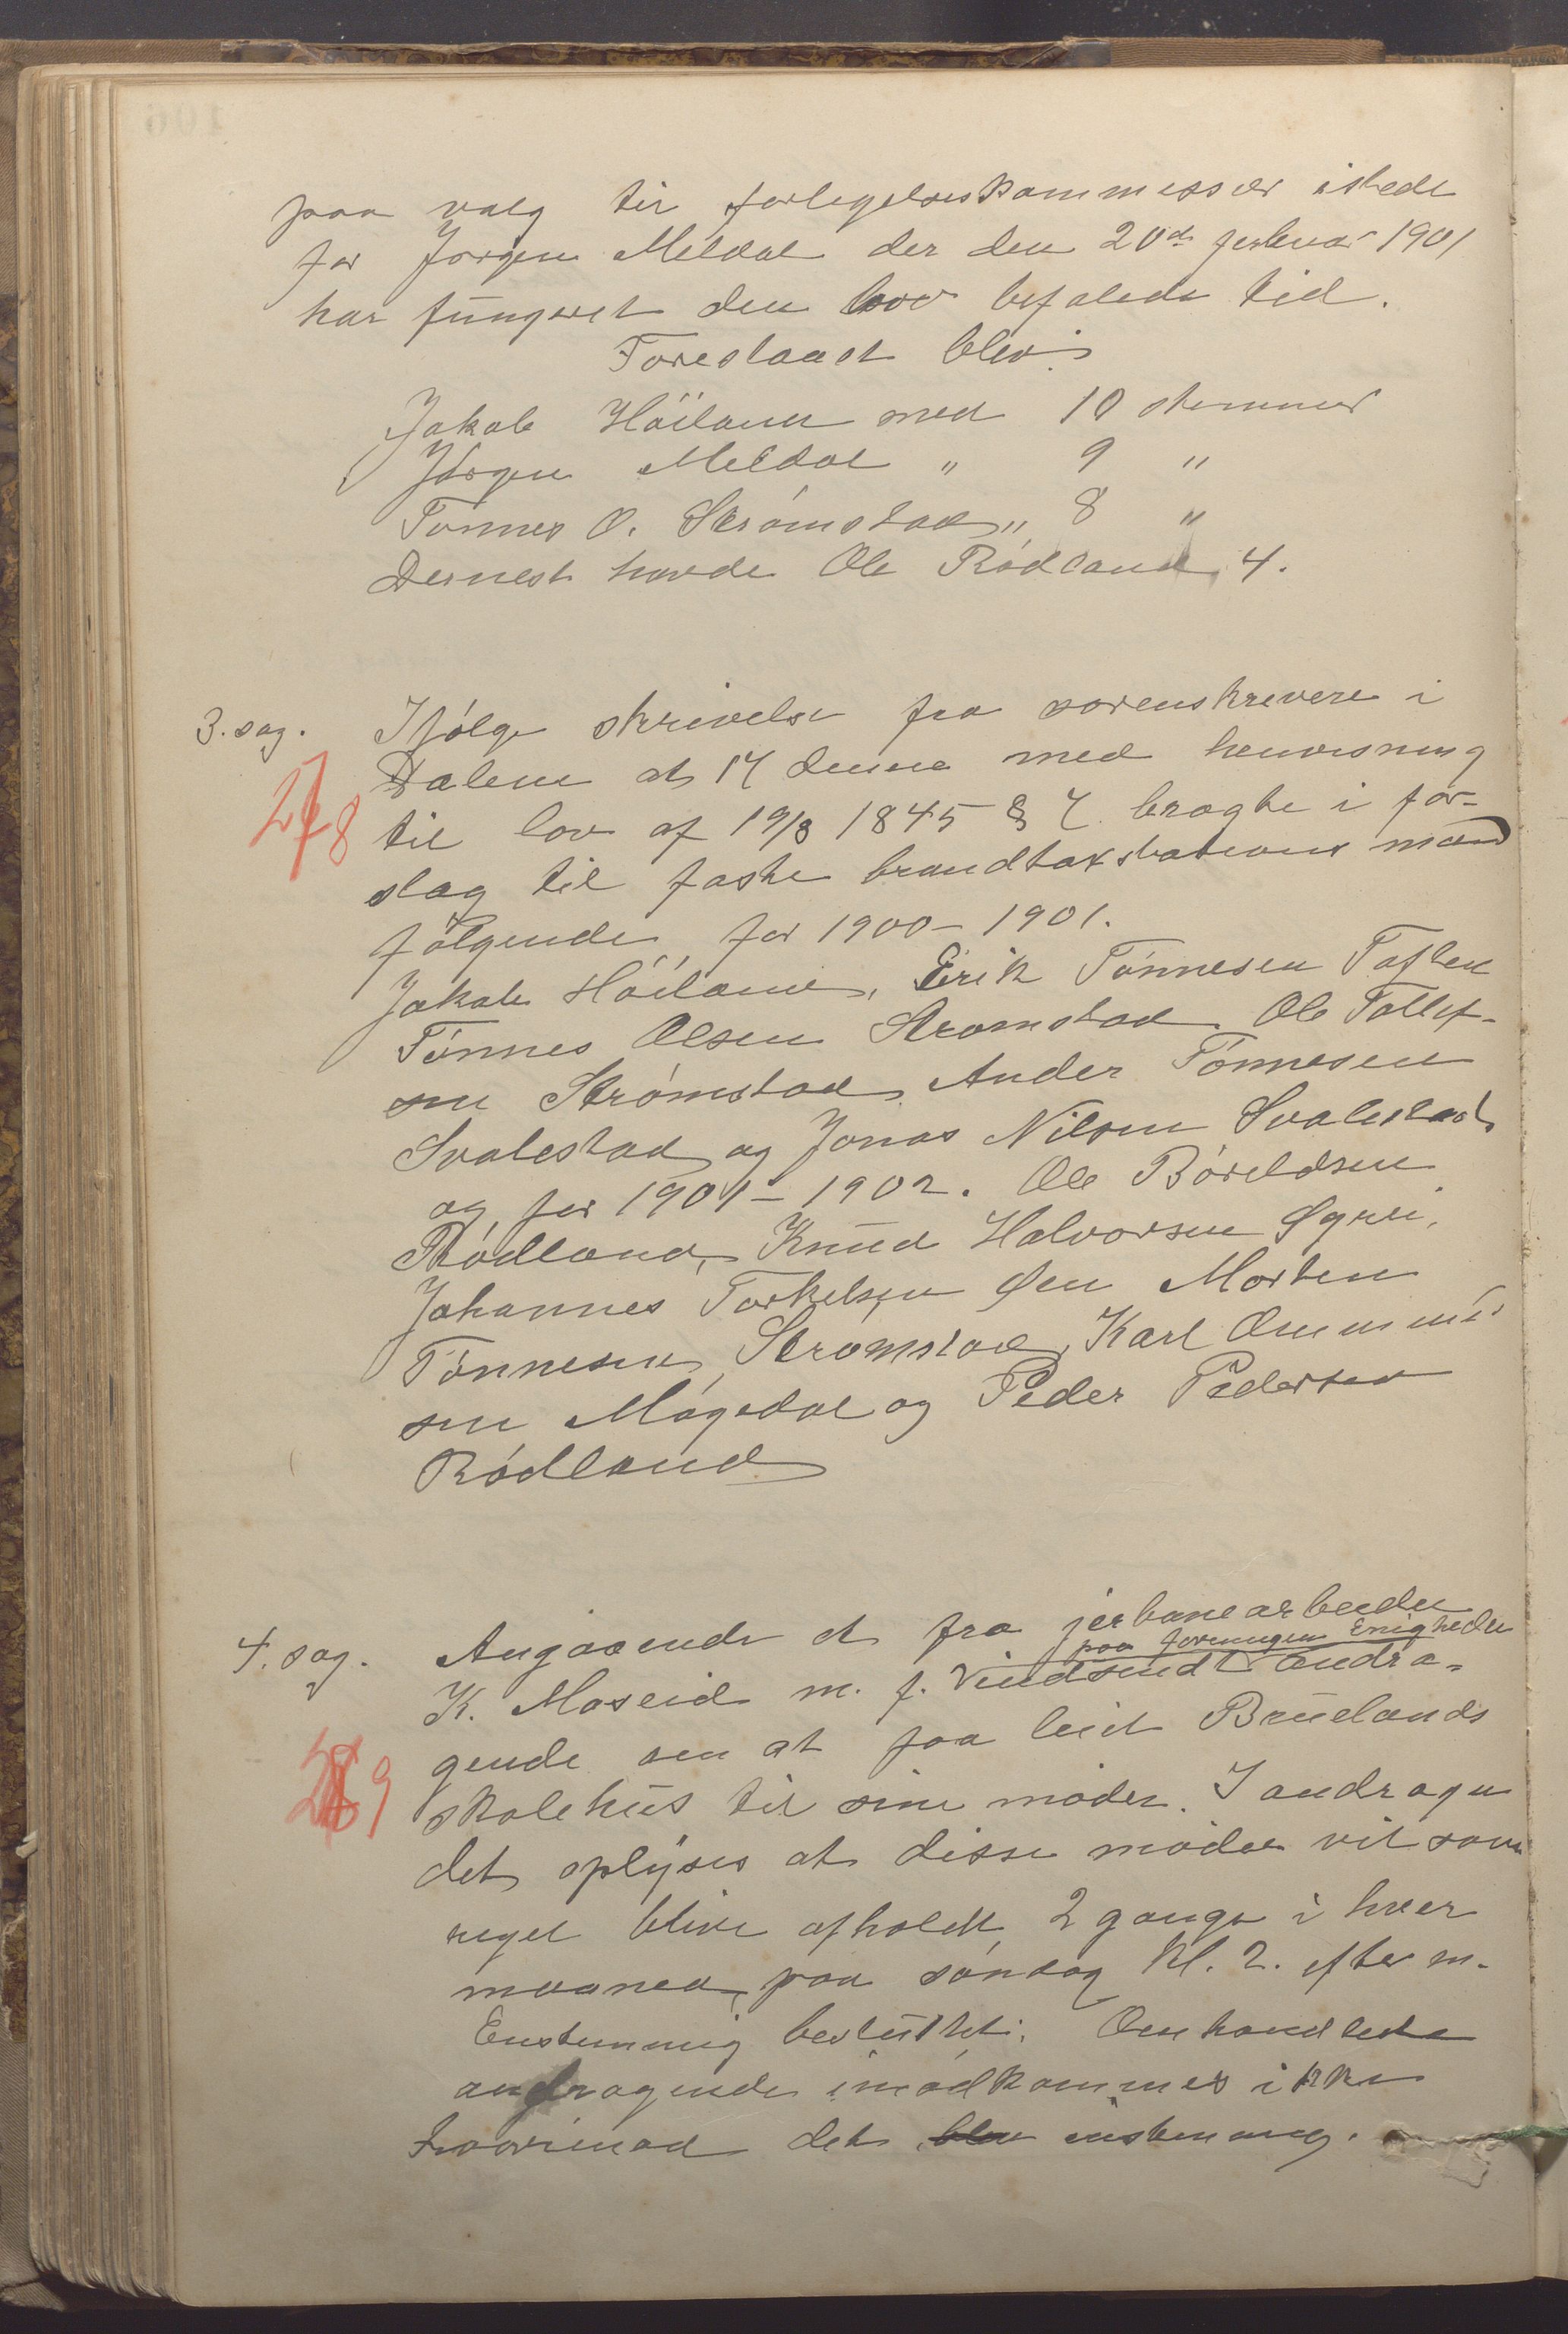 paa valg til forligelseskommissær istede
for Jørgen Meldal der den 20de februar 1901
har fungeret den lov befalede tid.
Foreslaaet blev:
Jakob Höiland med 10 stemmer
Jörgen Meldal " 9 "
Tönnes O. Strömstad " 8 "
Dernest havde Ole Rödland 4.
3. sag. Ifölge skrivelse fra sorenskrivere i
Dalene at 17 denne med henvisning
278
til lov af 19/8 1845 § 7 bragte i for-
slag til faste brandtakstations mænd
fölgende for 1900-1901.
Jakob Höiland, Erik Tönnesen Toften
Tönnes Olsen Strömstad Ole Tollef-
sen Strömstad, Ander Tönnesen
Svalestad og Jonas Nilsen Svalestad
og for 1901-1902. Ole Böreldsen
Rödland, Knud Halvorsen Øgrei,
Johannes Torkelsen Øen Morten
Tönnesen, Strömstad, Karl Ommund
sen Mögedal og Peder Pedersen
Rödland
4. sag. Angaaende et fra jerbanearbeider
paa foreningen Enigheden
K. Moseid m. f. Vindsendt andra-
gende om at faa leiet Bruelands
289
skolehus til sine möder. I andragen
det oplyses at disse möder vil som
regel blive afholdt 2 gange i hver
maaned, paa söndag Kl. 2. efterm.
Enstemmig besluttet: Omhandlede
andragende imödkommes ikke
hvorimod det blev enstemmig.